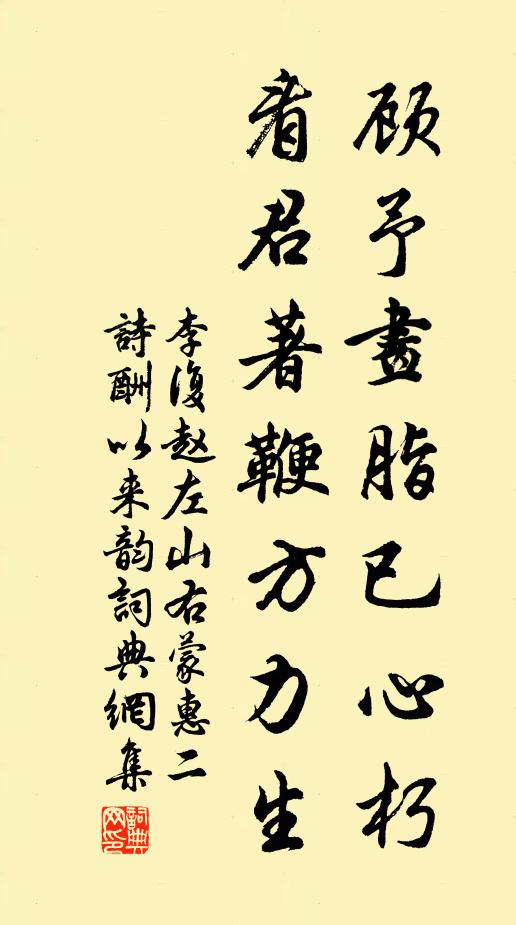 顾予畫脂已心朽
看君著鞭方力生
李復赵左山右蒙惠二
詩酬以来韵詞典網集
詞典网印